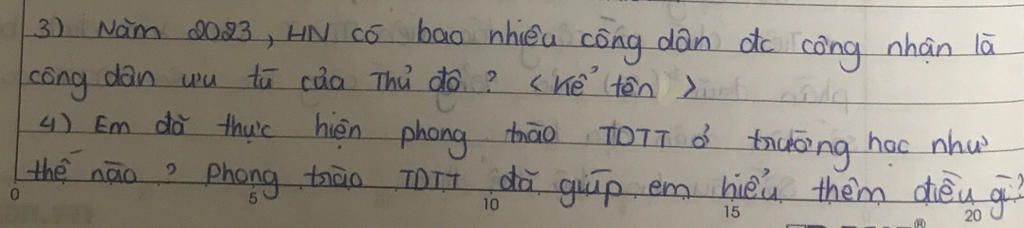 3) Năm 2023, HN có bao nhiêu công dân đc công nhận là
công dân ưu tú của Thủ đô? <Kể tên>
4) Em đã thực hiện phong trào TDTT ở trường học như
thế nào? Phong trào TDTT đã giúp em hiểu thêm điều gì?
0 5 10 15 20